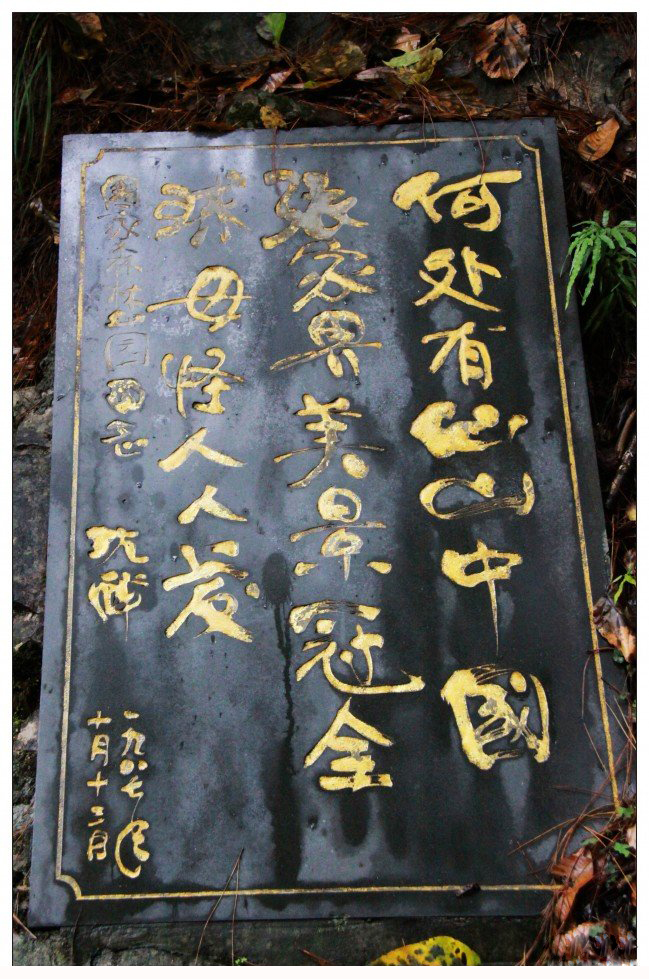 何处有仙山中國
张家界美景冠全
球毋怪人人爱
國家森林公园留念
沈醉
一九八七年
十月十三日